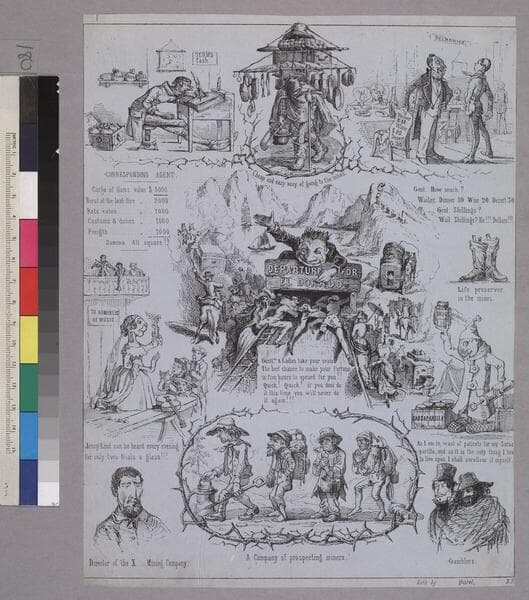 TERMS
Cash
DELMONICO
Cheap and easy way of going to the mines
CORRESPONDING AGENT.
Cargo of flour value $ 5000
Burnt at the last fire 2000
Rats eaten 1000
Customs & duties 1000
Freigth 1000
Summa. All square!
Gent. How much?
Waiter. Dinner 10 Wine 20
Gent. Shillings?
Wait. Shillings? No!!! Dollars!!!
DEPARTURE FOR
EL DORADO
Life preserver
in the mines.
TO AMMERICK
DE MUSIC
Gent.n & Ladies take your seats!
The best chance to make your fortune
in five hours is opened for you!!
Quick! Quick! if you dont do
it this time you will never do
it again!!!
SARSAPARILLA
Jenny Lind can be heard every evening
for only two trials a glass!!!
As I am in want of patients for my Sarsa
parilla, and as it is the only thing I have
to live upon I shall swallow it myself.
A Company of prospecting miners.
Director of the X... Mining Company.
Gamblers.
Lith by